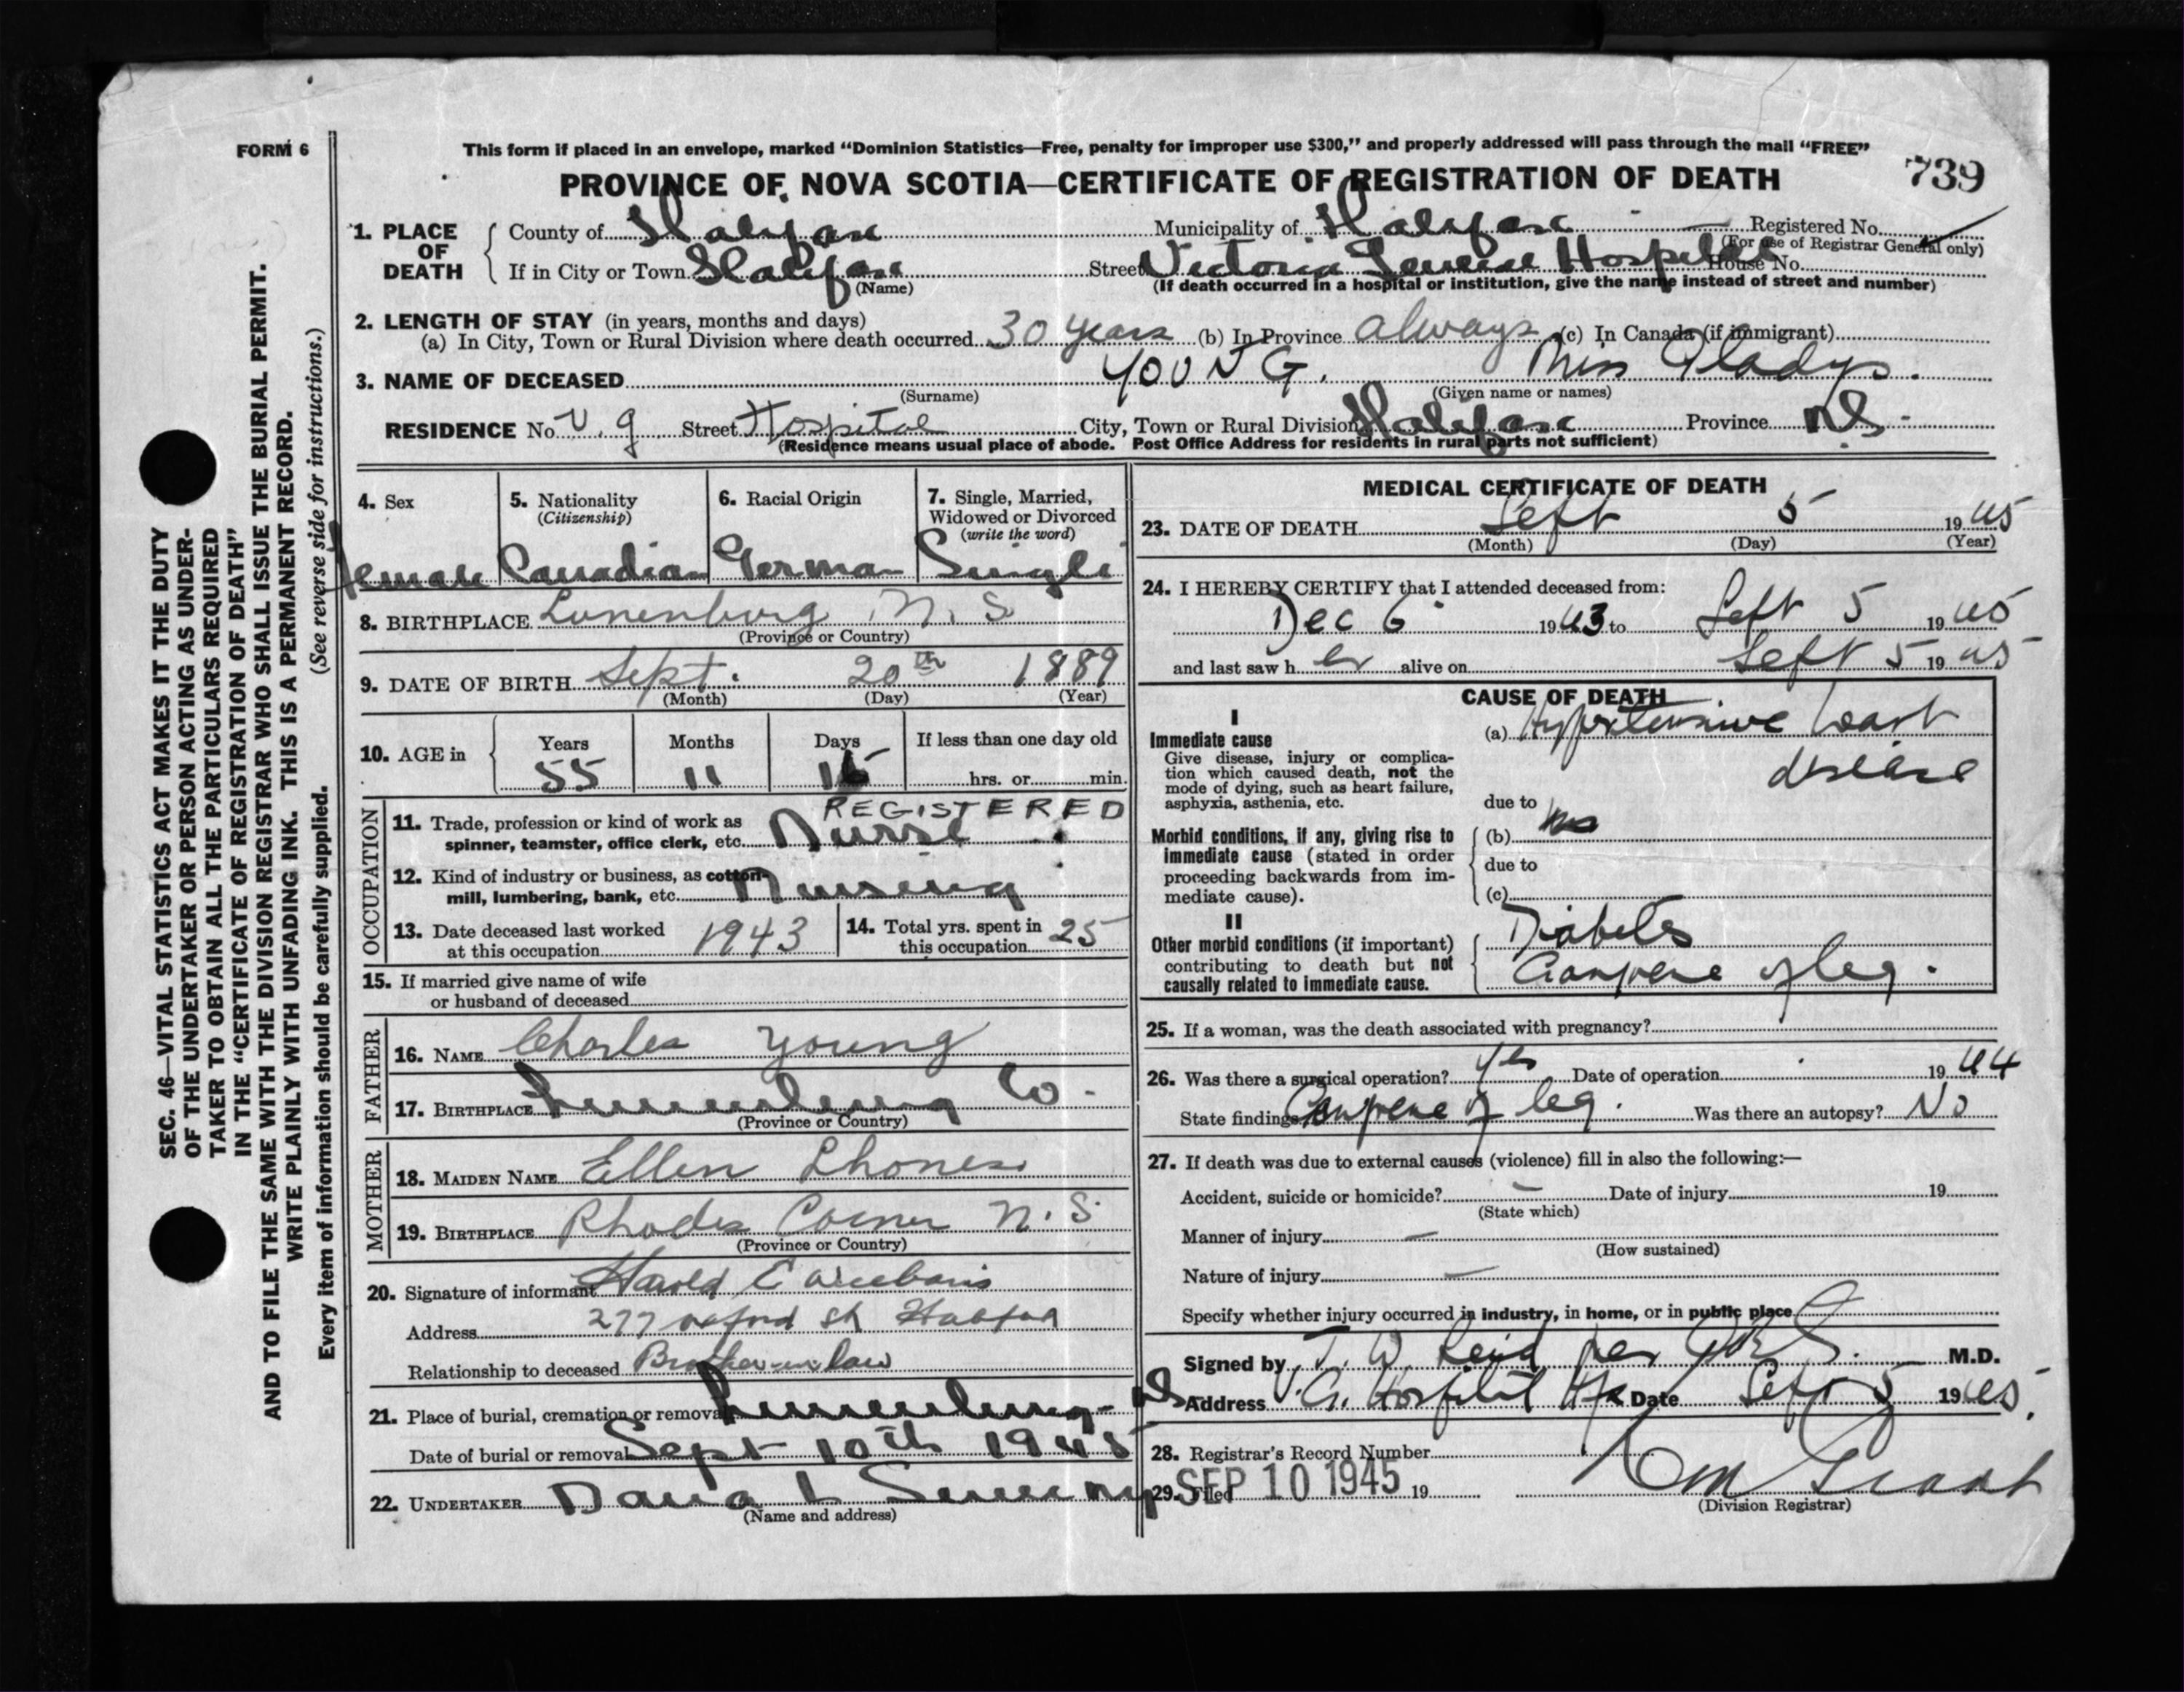 FORM 6
This form if placed in an envelope, marked "Dominion Statistics—Free, penalty for improper use $300," and properly addressed will pass through the mail "FREE"
PROVINCE OF NOVA SCOTIA—CERTIFICATE OF REGISTRATION OF DEATH
739
1. PLACE OF DEATH
County of Halifax Municipality of Halifax Registered No.
(For use of Registrar General only)
If in City or Town Halifax Street Victoria General Hospital House No.
(Name) (If death occurred in a hospital or institution, give the name instead of street and number)
2. LENGTH OF STAY (in years, months and days)
(a) In City, Town or Rural Division where death occurred 30 years (b) In Province always (c) In Canada (if immigrant)
3. NAME OF DECEASED YOUNG. Miss Gladys.
(Surname) (Given name or names)
RESIDENCE No. V. G Street Hospital City, Town or Rural Division Halifax Province N S.
(Residence means usual place of abode. Post Office Address for residents in rural parts not sufficient)
4. Sex
Female
5. Nationality
(Citizenship)
Canadian
6. Racial Origin
German
7. Single, Married,
Widowed or Divorced
(write the word)
Single
8. BIRTHPLACE Lunenburg N. S
(Province or Country)
9. DATE OF BIRTH Sept. 20th 1889
(Month) (Day) (Year)
10. AGE in
Years Months Days If less than one day old
55 11 hrs. or min.
OCCUPATION
11. Trade, profession or kind of work as
spinner, teamster, office clerk, etc. REGISTERED Nurse
12. Kind of industry or business, as cotton-
mill, lumbering, bank, etc. Nursing
13. Date deceased last worked
at this occupation 1943
14. Total yrs. spent in
this occupation 25
15. If married give name of wife
or husband of deceased
FATHER
16. NAME Charles Young
17. BIRTHPLACE Lunenburg Co.
(Province or Country)
MOTHER
18. MAIDEN NAME Ellen
19. BIRTHPLACE Rhodes Corner N. S.
(Province or Country)
20. Signature of informant Harold E
Address 277 Oxford St Halifax
Relationship to deceased Brother-in-law
21. Place of burial, cremation or removal Lunenburg- NS
Date of burial or removal Sept 10th 1945
22. UNDERTAKER
(Name and address)
MEDICAL CERTIFICATE OF DEATH
23. DATE OF DEATH Sept 5 1945
(Month) (Day) (Year)
24. I HEREBY CERTIFY that I attended deceased from:
Dec 6 1943 to Sept 5 1945
and last saw her alive on Sept 5 1945
CAUSE OF DEATH
I
Immediate cause
Give disease, injury or complica-
tion which caused death, not the
mode of dying, such as heart failure,
asphyxia, asthenia, etc.
(a) Hypertensive heart
disease
due to
Morbid conditions, if any, giving rise to
immediate cause (stated in order
proceeding backwards from im-
mediate cause).
(b)
due to
(c)
II
Other morbid conditions (if important)
contributing to death but not
causally related to immediate cause.
Diabetes
Gangrene of leg.
25. If a woman, was the death associated with pregnancy?
26. Was there a surgical operation? Yes Date of operation 1944
State findings Gangrene of leg. Was there an autopsy? No
27. If death was due to external causes (violence) fill in also the following:—
Accident, suicide or homicide? – Date of injury 19
(State which)
Manner of injury –
(How sustained)
Nature of injury –
Specify whether injury occurred in industry, in home, or in public place
Signed by T. W. Reid per M.D.
Address V. G. Hospital Hfx Date Sept 5 1945.
28. Registrar's Record Number
29. Filed SEP 10 1945 19
(Division Registrar)
SEC. 46—VITAL STATISTICS ACT MAKES IT THE DUTY
OF THE UNDERTAKER OR PERSON ACTING AS UNDER-
TAKER TO OBTAIN ALL THE PARTICULARS REQUIRED
IN THE "CERTIFICATE OF REGISTRATION OF DEATH"
AND TO FILE THE SAME WITH THE DIVISION REGISTRAR WHO SHALL ISSUE THE BURIAL PERMIT.
WRITE PLAINLY WITH UNFADING INK. THIS IS A PERMANENT RECORD.
Every item of information should be carefully supplied. (See reverse side for instructions.)